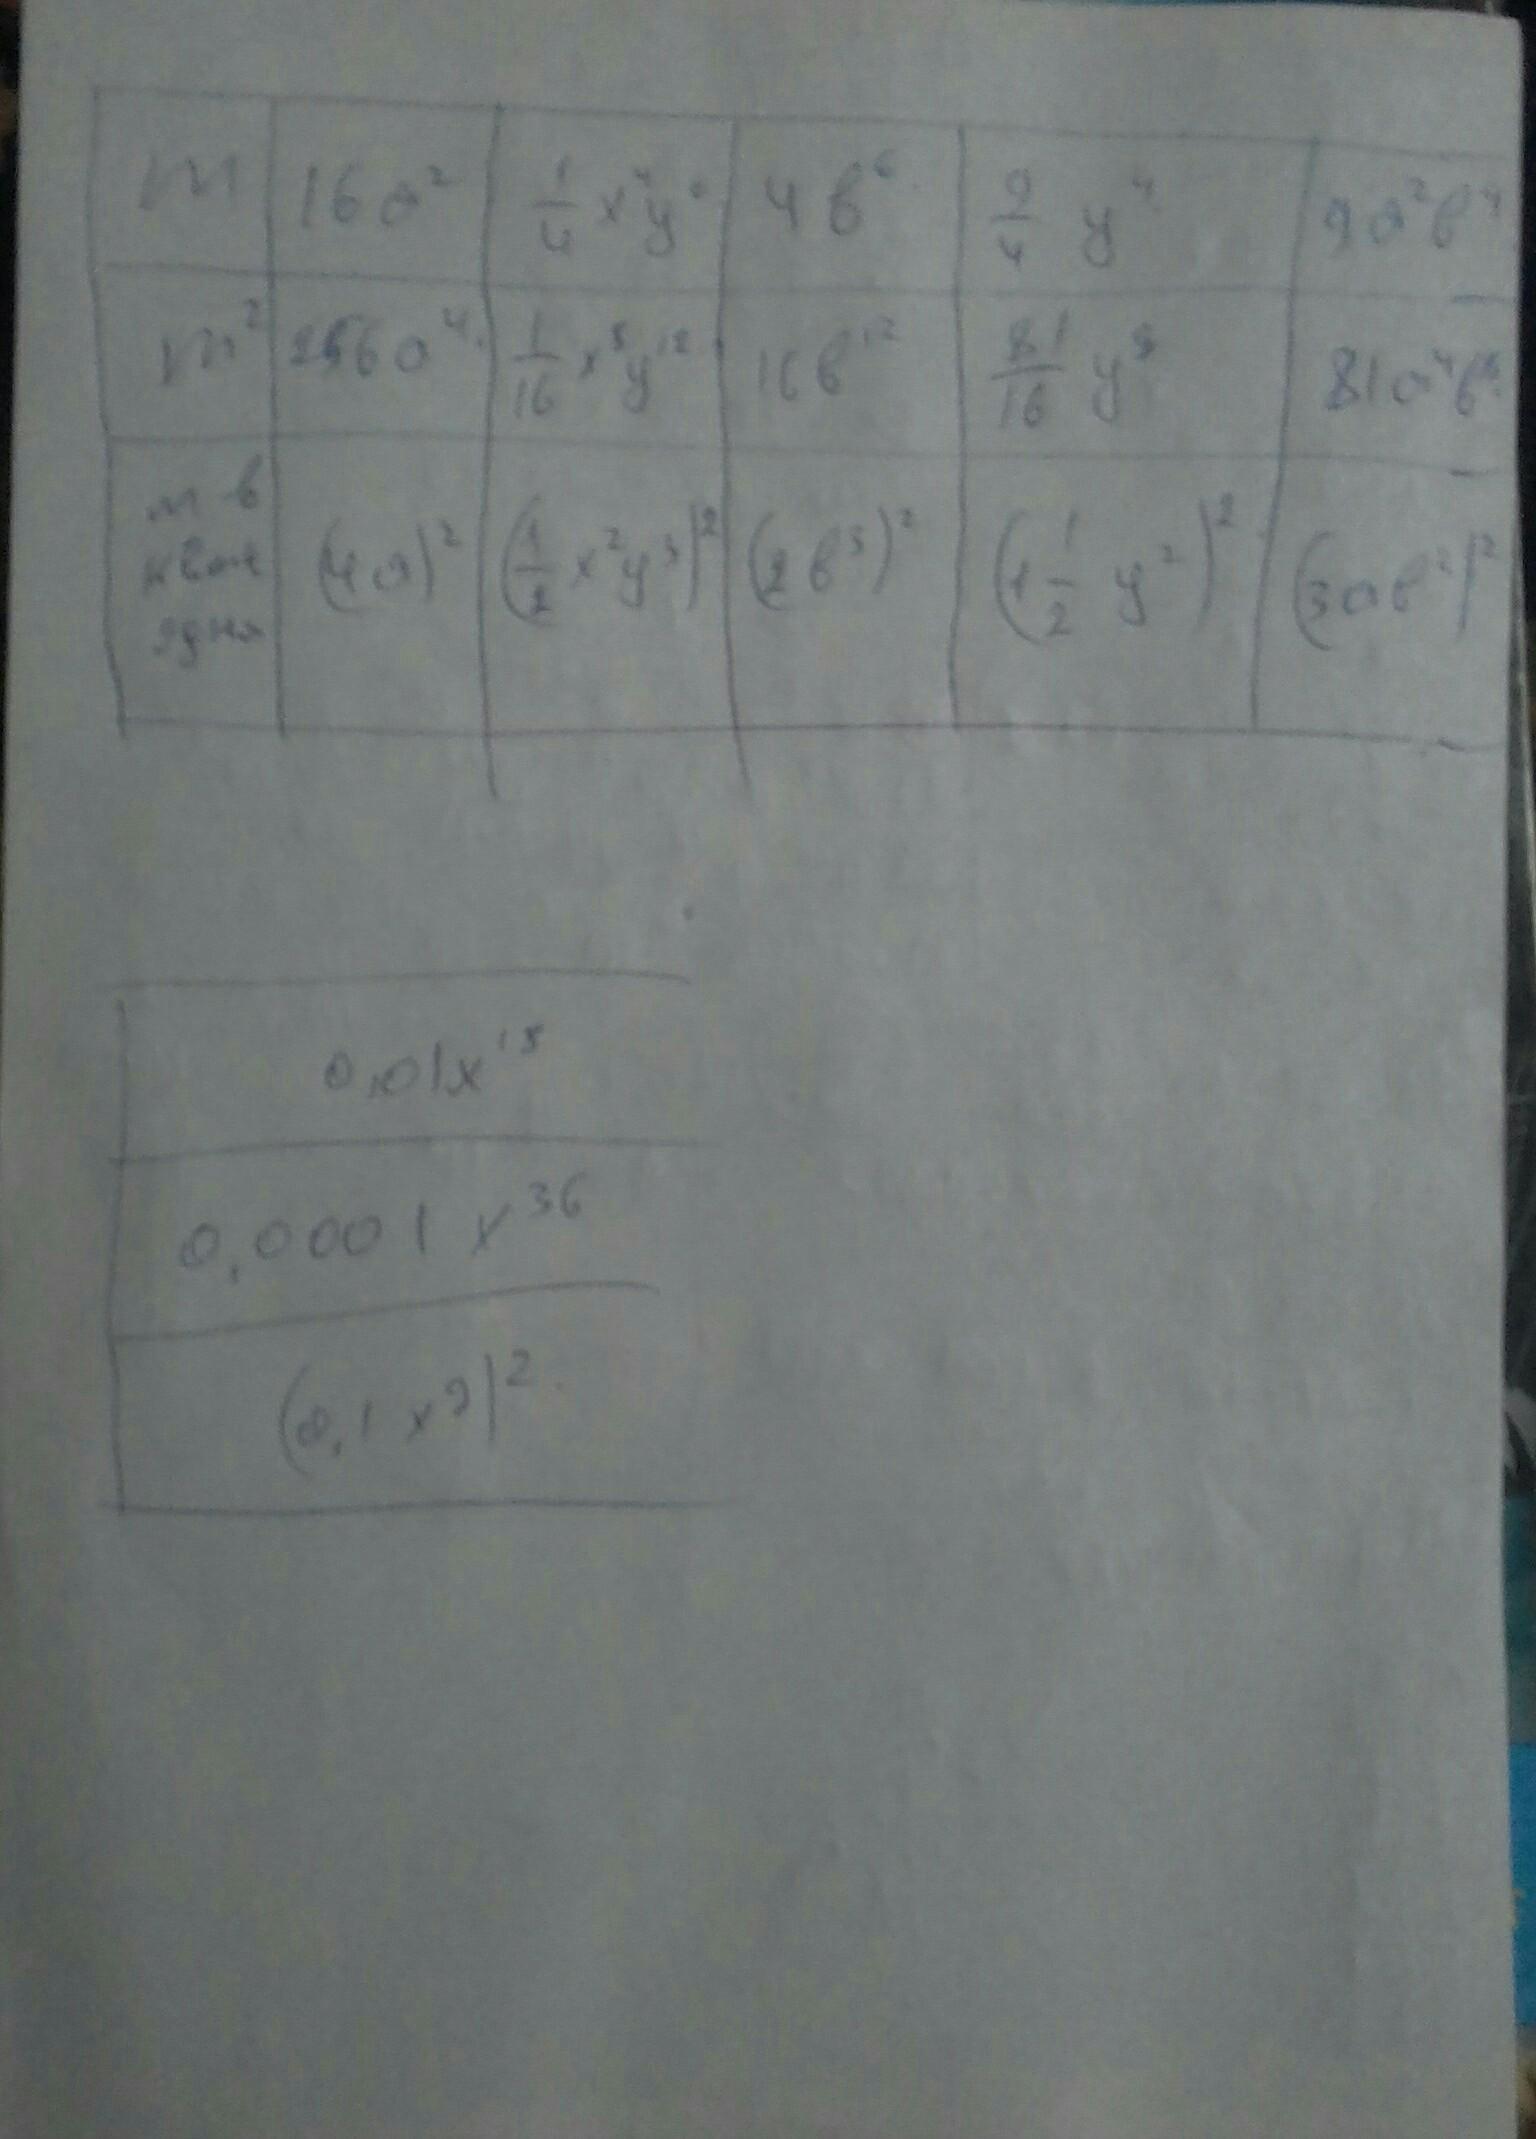 m 16a² 1/4 x⁴y⁶ 4в⁶ 9/4 y⁴ 9a²в⁴
m² 256a⁴ 1/16 x⁸y¹² 16в¹² 81/16 y⁸ 81a⁴в⁸
m в (4a)² (1/2 x²y³)² (2в³)² (1 1/2 y²)² (3aв²)²
0,01x¹⁸
0,0001x³⁶
(0,1x⁹)²